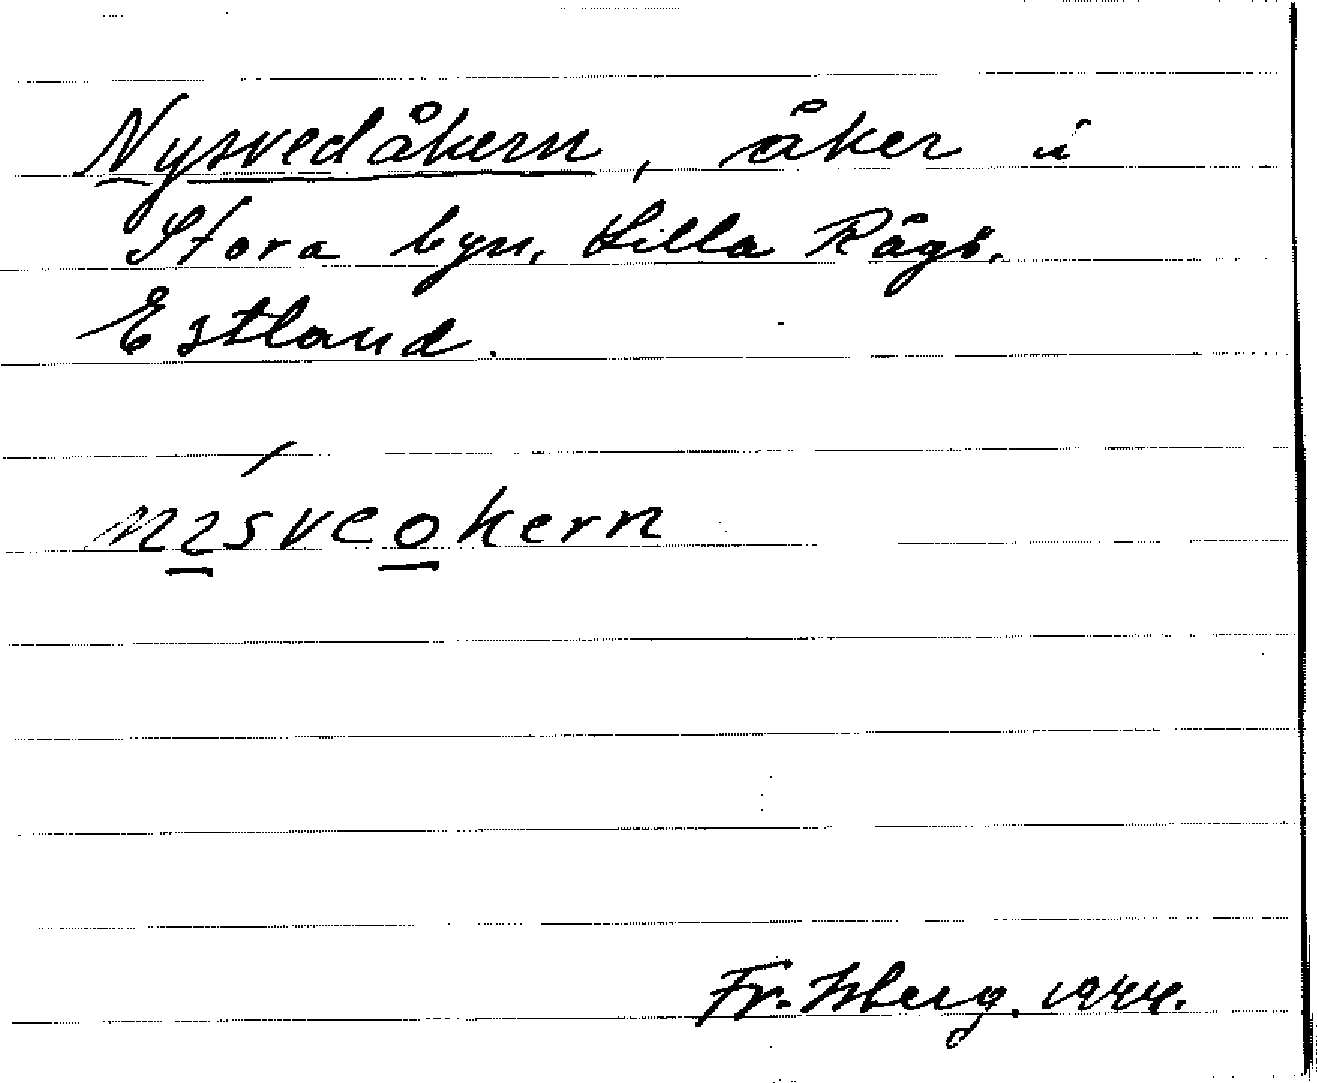 Nysvedåkern, åker i
Stora byn, Lilla Rågö,
Estland.
nısveokern
Fr. Isberg. 1944.